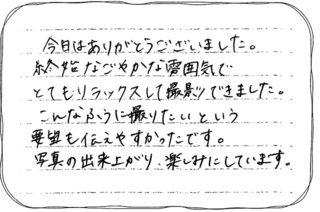 今日はありがとうございました。
終始なごやかな雰囲気で
とてもリラックスして撮影できました。
こんなふうに撮りたいという
要望も伝えやすかったです。
写真の出来上がり、楽しみにしています。